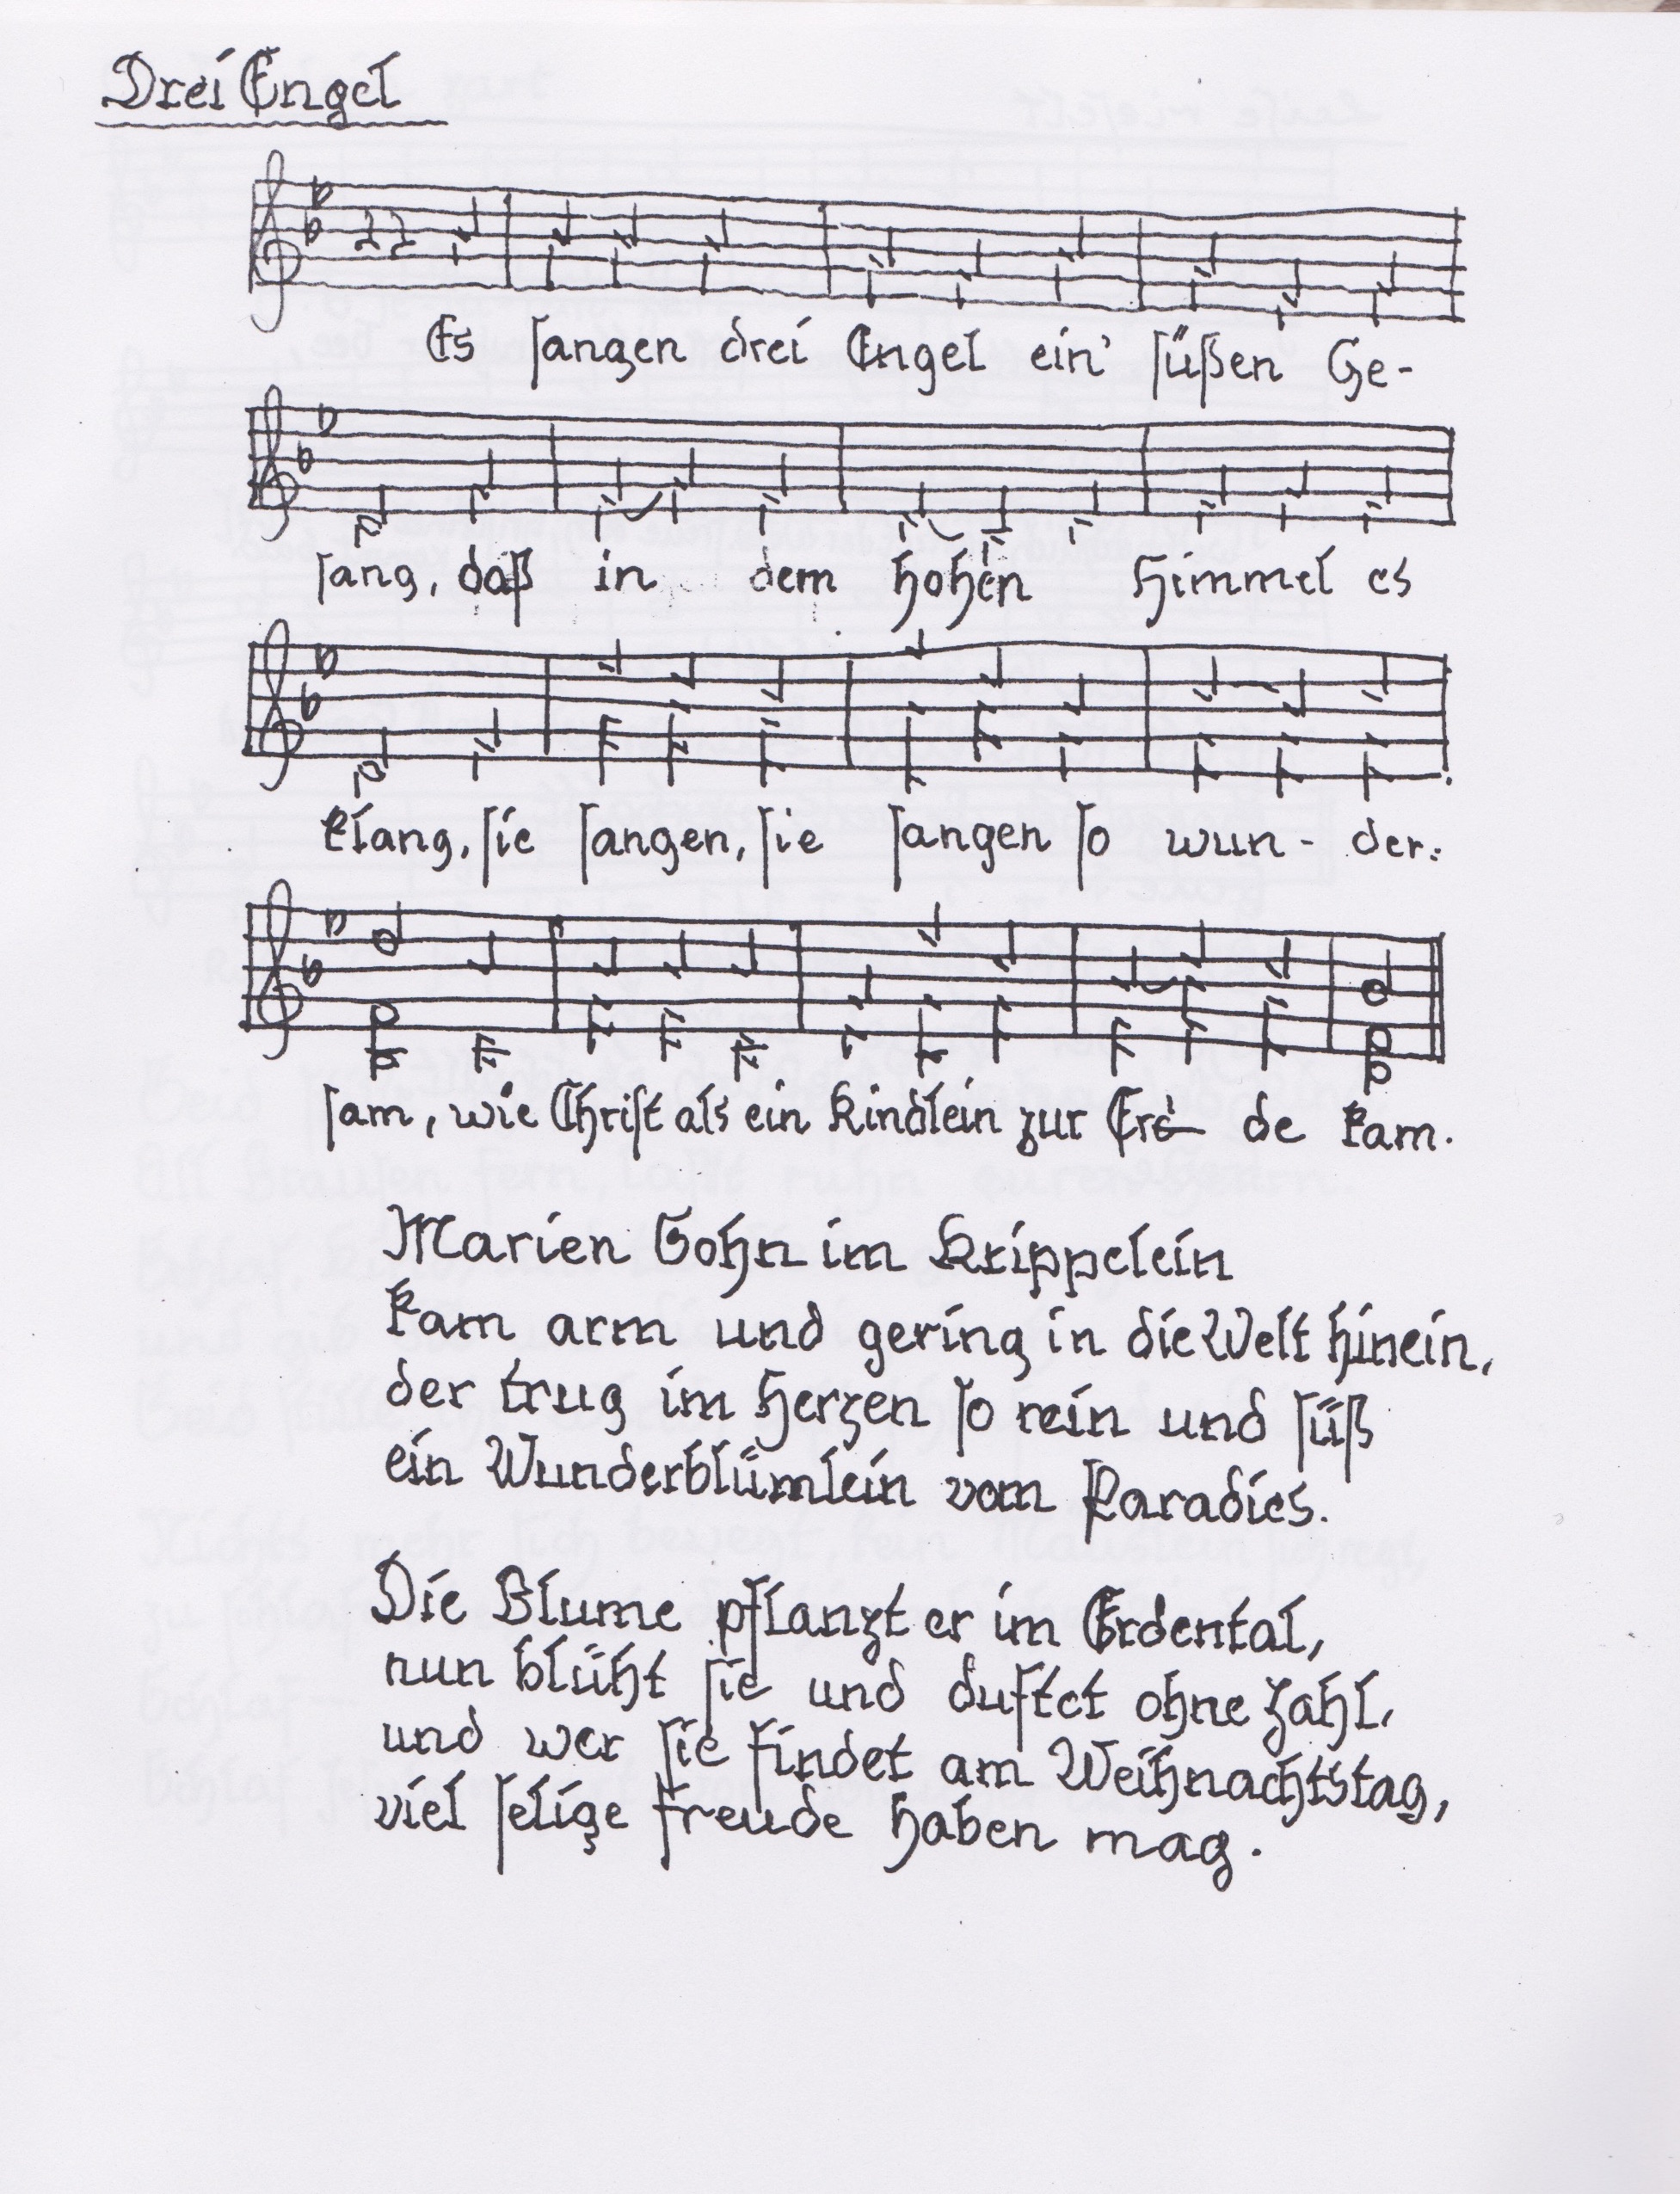 Drei Engel
Es sangen drei Engel ein' süßen Ge-
sang, daß in dem hohen Himmel es
klang, sie sangen, sie sangen so wun- der-
sam, wie Christ als ein Kindlein zur Erd- de kam.
Marien Sohn im Krippelein
kam arm und gering in die Welt hinein,
der trug im Herzen so rein und süß
ein Wunderblümlein vom Paradies.
Die Blume pflanzt er im Erdental,
nun blüht sie und duftet ohne Zahl,
und wer sie findet am Weihnachtstag,
viel selige Freude haben mag.